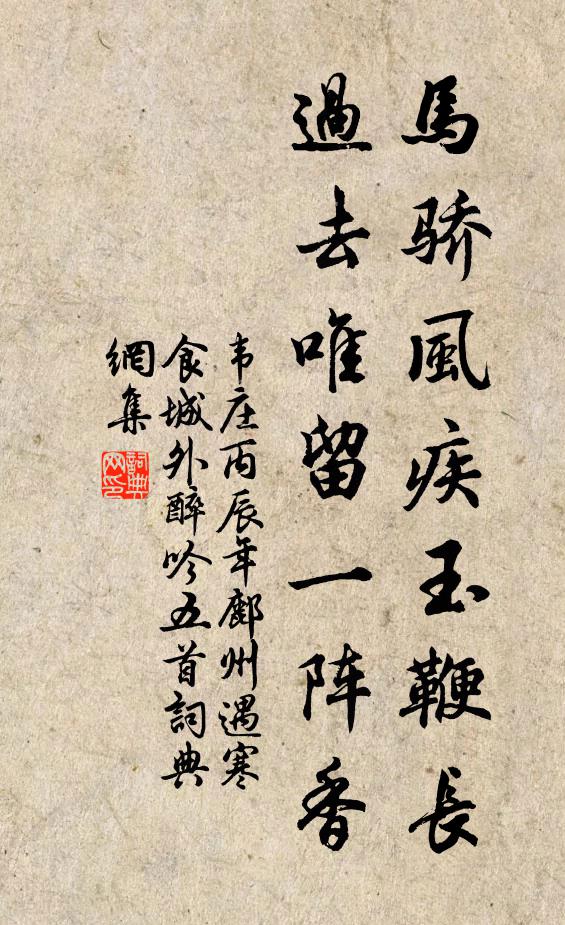 馬骄風疾玉鞭長
過去唯留一阵香
韦庄丙辰年鄜州遇寒
食城外醉吟五首詞典
網集
詞典
网印